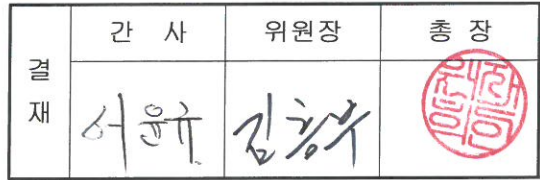 결재 간 사 위원장 총 장
서윤규